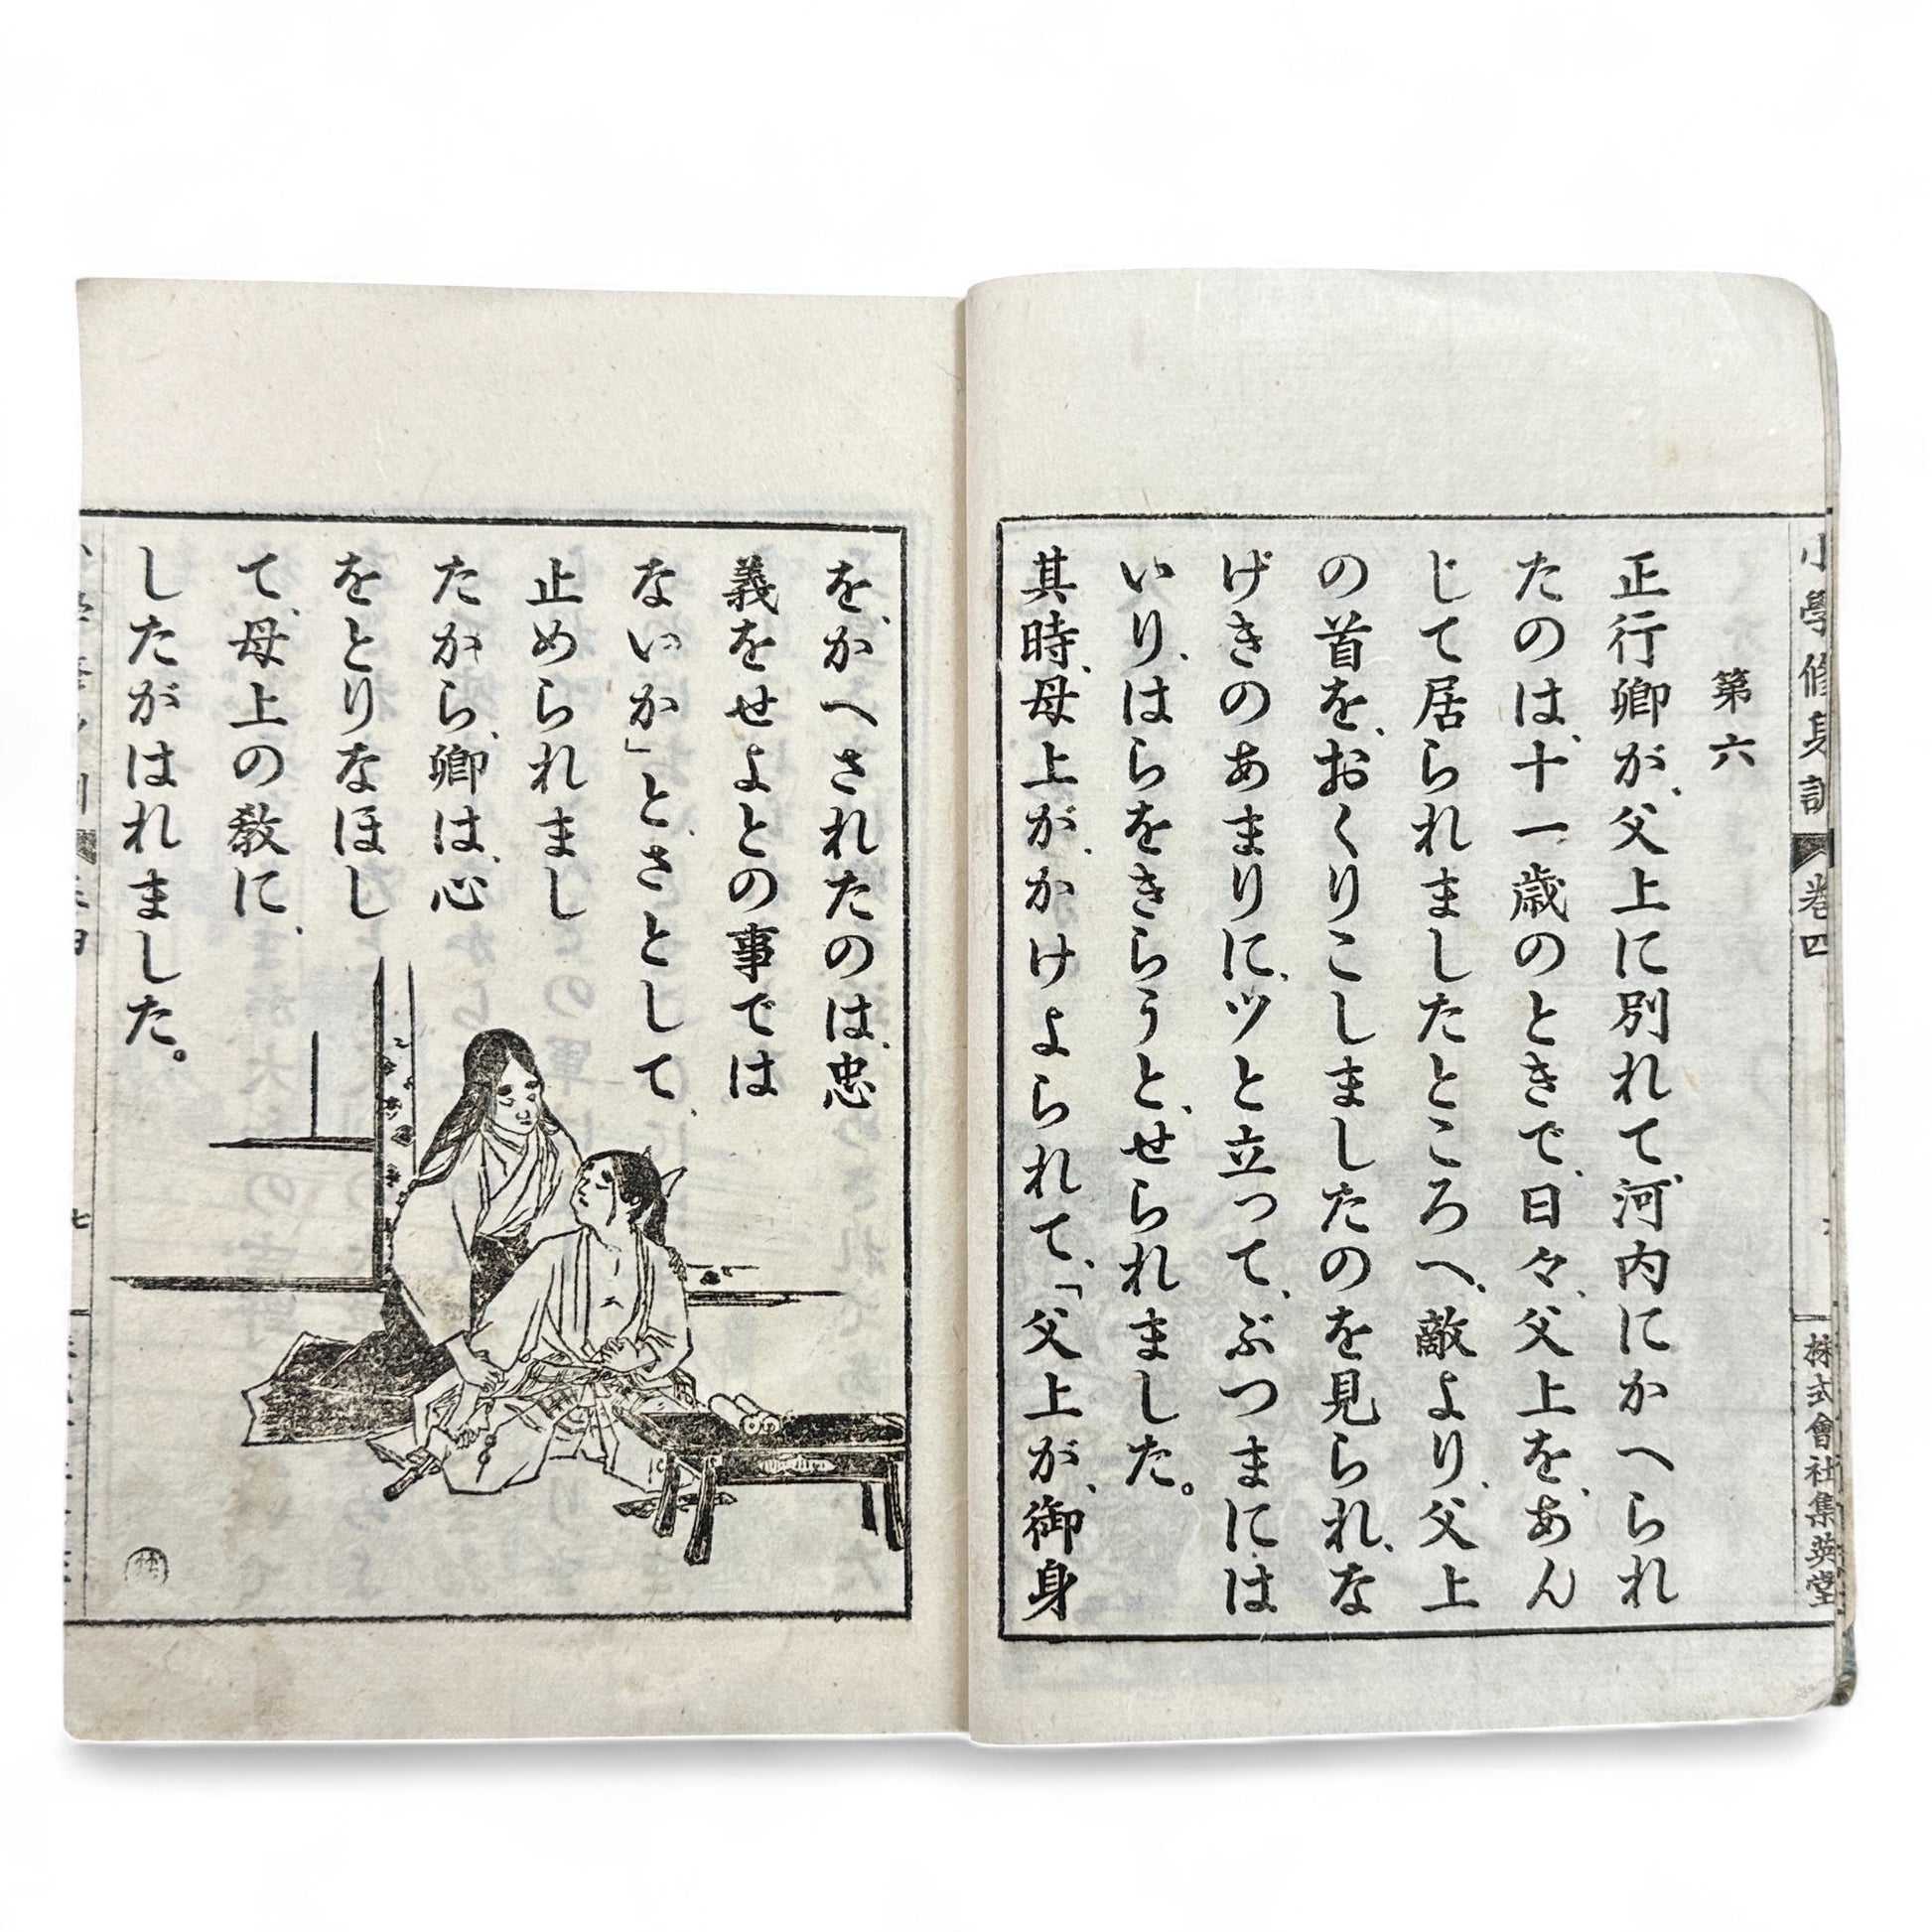 小學修身訓 卷四
株式會社集英堂
第六
正行卿が、父上に別れて、河内にかへられ
たのは、十一歳のときで、日々、父上を、あん
じて居られましたところへ、敵より、父上
の首を、おくりこしましたのを見られ、な
げきのあまりに、ツと立って、ぶつまには
いり、はらをきらうと、せられました。
其時、母上が、かけよられて、「父上が、御身
を、かへされたのは、忠
義をせよとの事では
ないか」と、さとして、
止められまし
たから、卿は、心
をとりなほし
て、母上の教に、
したがはれました。
七